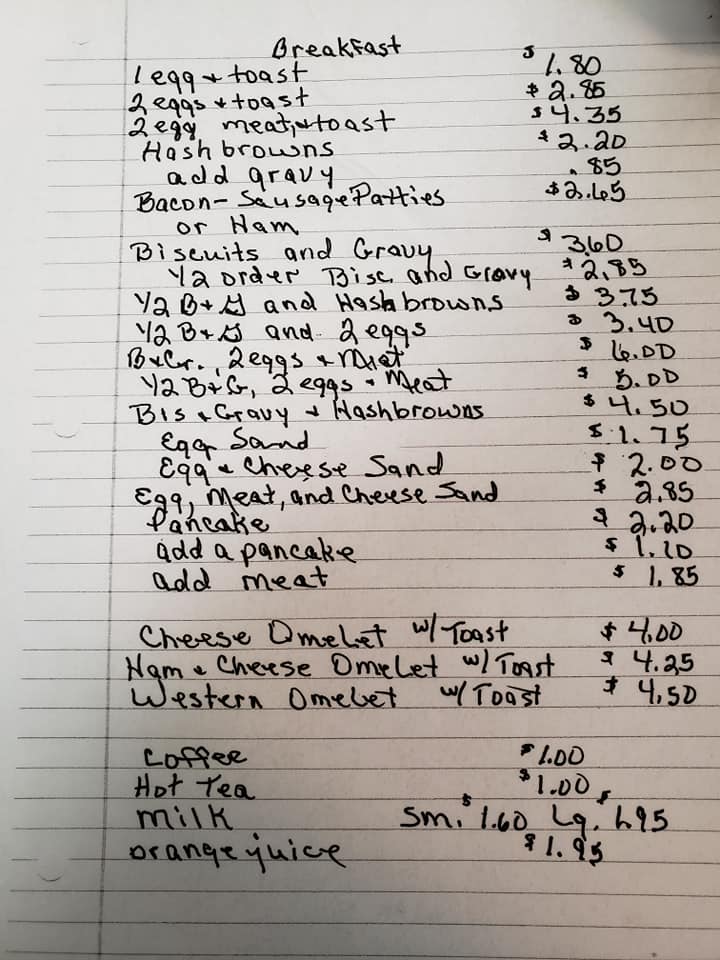 Breakfast
1 egg & toast $1.80
2 eggs & toast $2.85
2 egg meat, & toast $4.35
Hashbrowns $2.20
add gravy .85
Bacon - Sausage Patties $2.65
or Ham
Biscuits and Gravy $3.60
1/2 order Bisc, and Gravy $2.85
1/2 B+G and Hashbrowns $3.75
1/2 B+G and 2 eggs $3.40
B&Gr., 2 eggs & Meat $6.00
1/2 B+G, 2 eggs & Meat $5.00
Bis & Gravy & Hashbrowns $4.50
Egg Sand $1.75
Egg & Cheese Sand $2.00
Egg, Meat, and Cheese Sand $2.85
Pancake $2.20
add a pancake $1.10
add meat $1.85
Cheese Omelet w/ Toast $4.00
Ham & Cheese Omelet w/ Toast $4.25
Western Omelet w/ Toast $4.50
Coffee $1.00
Hot Tea $1.00
milk Sm. $1.60 Lg. $1.95
orange juice $1.95